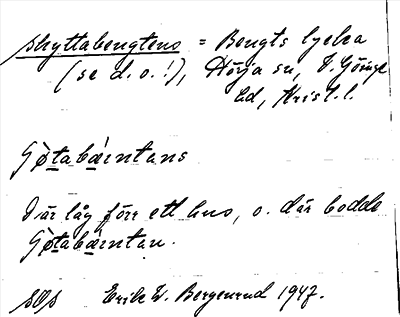 skyttabengtens = Bengts lycka
(se d. o.!), Hörja sn, V. Göinge
hd, Krist. l.
Gø̀tabæ̀rntans
Där låg förr ett hus, o. där bodde
Gøtabærntan.
sOs Erik W. Bergenrud 1947.